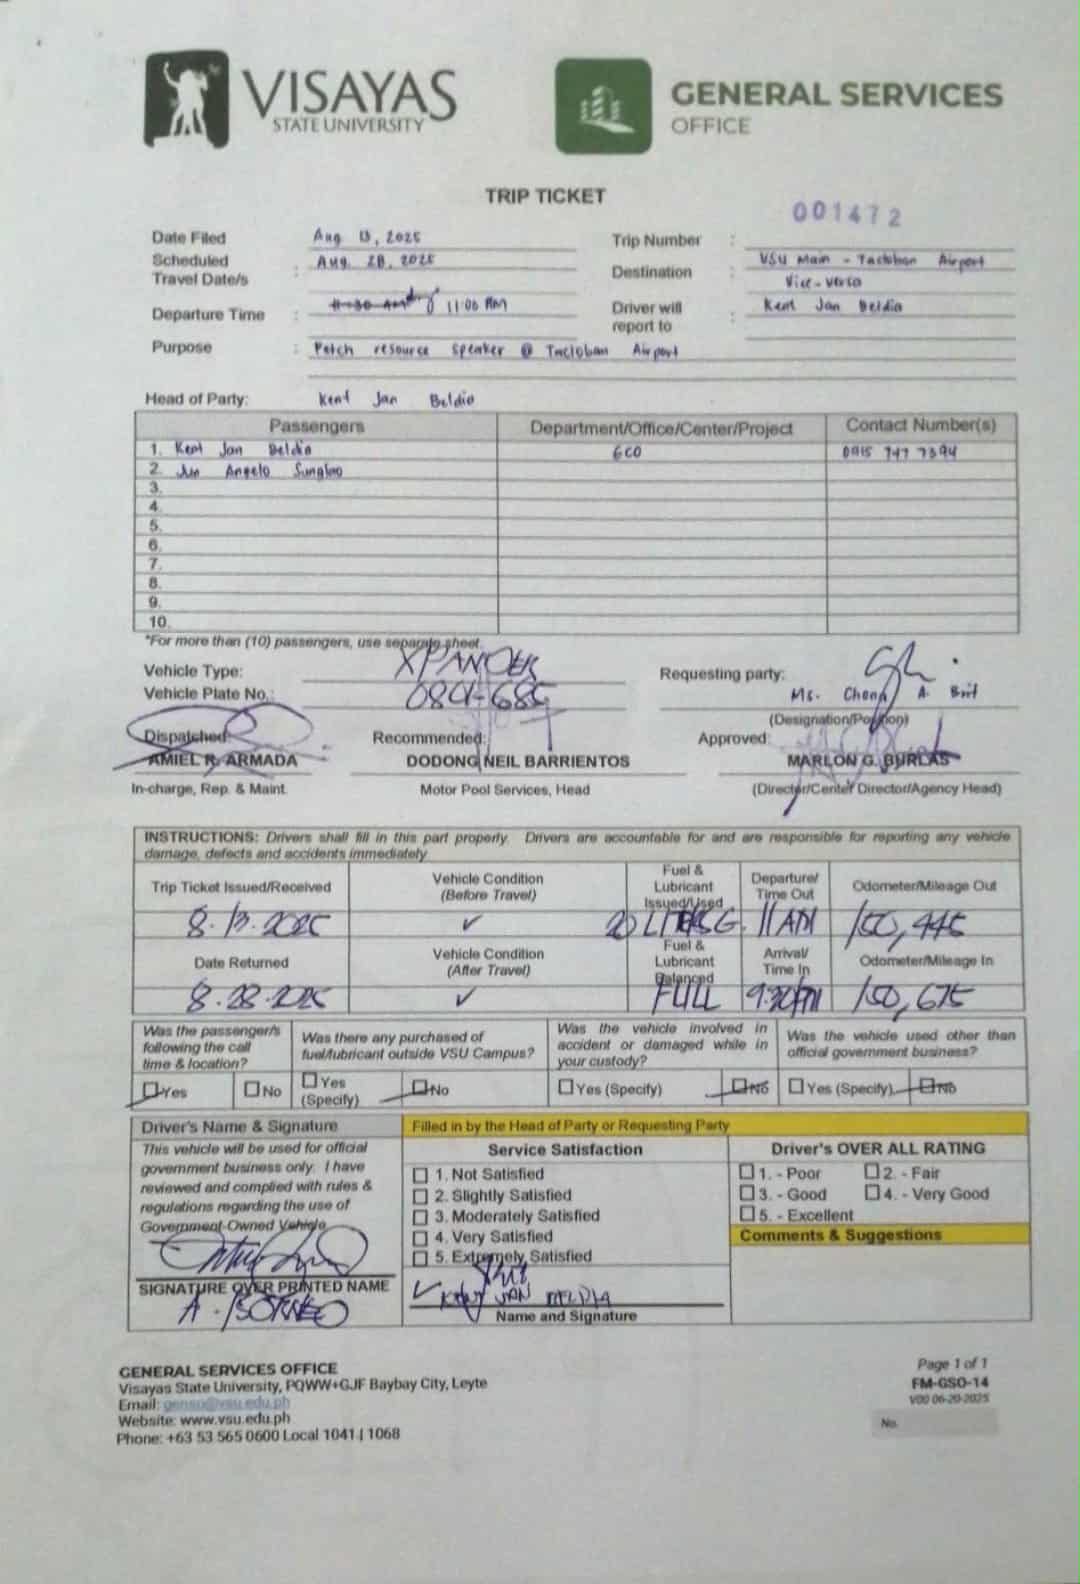 VISAYAS
STATE UNIVERSITY
GENERAL SERVICES
OFFICE
TRIP TICKET
001472
Date Filed Aug 13, 2025 Trip Number :
Scheduled Travel Date/s : Aug. 28, 2025 Destination : VSU Main - Tacloban Airport
Vice-versa
Departure Time : 11:00 AM Driver will report to : Kent Jan Beldia
Purpose : Fetch resource speaker @ Tacloban Airport
Head of Party: Kent Jan Beldia
Passengers Department/Office/Center/Project Contact Number(s)
1. Kent Jan Beldia GCO 0915 747 7394
2. Jun Angelo
3.
4.
5.
6.
7.
8.
9.
10.
*For more than (10) passengers, use separate sheet.
Vehicle Type: XPANDER Requesting party:
Vehicle Plate No.: Ms. A.
(Designation/Position)
Dispatched: Recommended: Approved:
AMIEL R. ARMADA DODONG NEIL BARRIENTOS MARLON G. BURLAS
In-charge, Rep. & Maint. Motor Pool Services, Head (Director/Center Director/Agency Head)
INSTRUCTIONS: Drivers shall fill in this part properly. Drivers are accountable for and are responsible for reporting any vehicle
damage, defects and accidents immediately
Trip Ticket Issued/Received Vehicle Condition (Before Travel) Fuel & Lubricant Issued/Used Departure/ Time Out Odometer/Mileage Out
8.13.2025 ✓ 20 LITERS G. 11AM 150,445
Date Returned Vehicle Condition (After Travel) Fuel & Lubricant Balanced Arrival/ Time In Odometer/Mileage In
8.28.2025 ✓ FULL 9:30PM 150,675
Was the passenger/s following the call time & location? Was there any purchased of fuel/lubricant outside VSU Campus? Was the vehicle involved in accident or damaged while in your custody? Was the vehicle used other than official government business?
Yes No Yes (Specify) No Yes (Specify) No Yes (Specify) No
Driver's Name & Signature Filled in by the Head of Party or Requesting Party
This vehicle will be used for official
government business only. I have
reviewed and complied with rules &
regulations regarding the use of
Government-Owned Vehicle
SIGNATURE OVER PRINTED NAME
A. BORNEO
Service Satisfaction
1. Not Satisfied
2. Slightly Satisfied
3. Moderately Satisfied
4. Very Satisfied
5. Extremely Satisfied
KENT JAN BELDIA
Name and Signature
Driver's OVER ALL RATING
1. - Poor 2. - Fair
3. - Good 4. - Very Good
5. - Excellent
Comments & Suggestions
GENERAL SERVICES OFFICE
Visayas State University, PQWW+GJF Baybay City, Leyte
Email: genso@vsu.edu.ph
Website: www.vsu.edu.ph
Phone: +63 53 565 0600 Local 1041 | 1068
Page 1 of 1
FM-GSO-14
V00 06-20-2025
No.